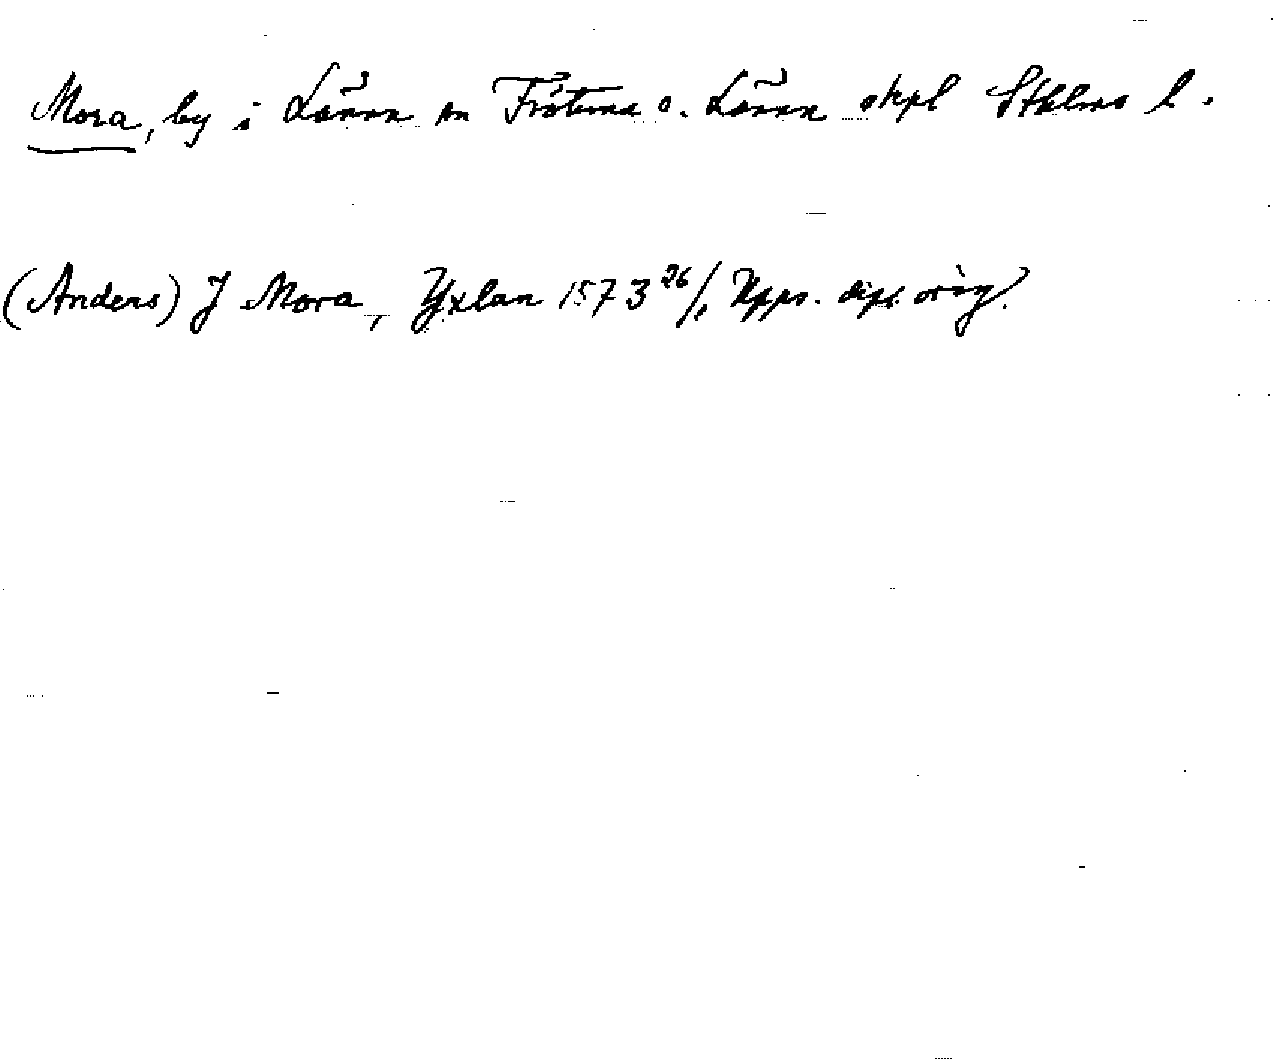 Mora, by i Länna sn Frötuna o. Länna skpl Sthlms l.
(Anders) J Mora, Yxlan 1573 26/1 Upps. dipl. orig.